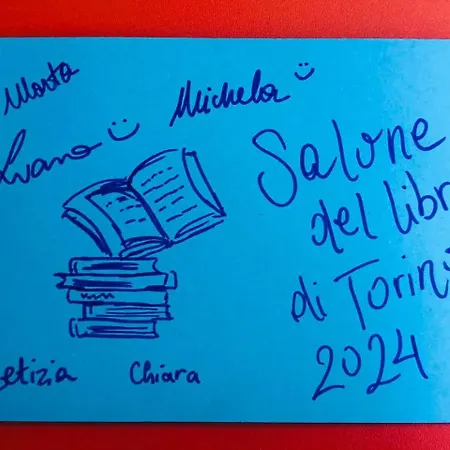 Marta
Ivana :)
Michela :)
Salone
del libr
di Torin
2024
etizia
Chiara